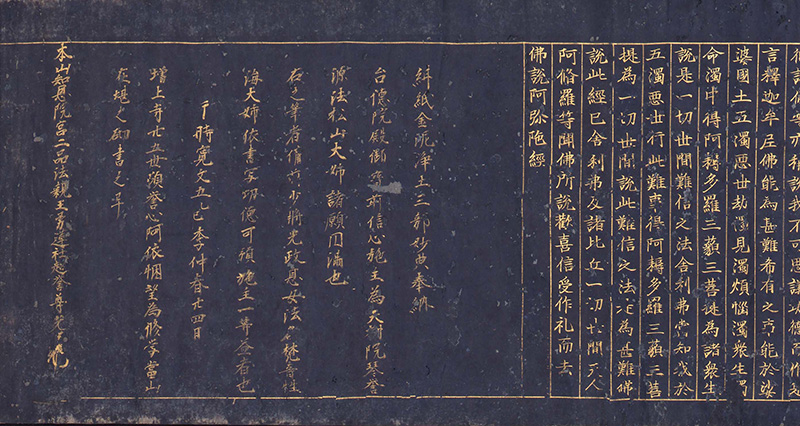 言釋迦牟尼佛能為甚難希有之事能於娑
婆國土五濁惡世劫濁見濁煩惱濁衆生濁
命濁中得阿耨多羅三藐三菩提為諸衆生
說是一切世間難信之法舍利弗當知我於
五濁惡世行此難事得阿耨多羅三藐三菩
提為一切世間說此難信之法是為甚難佛
說此經已舍利弗及諸比丘一切世間天人
阿脩羅等聞佛所說歡喜信受作礼而去
佛說阿弥陀經
紺紙金泥淨土三部妙典奉納
台德院殿御寄前信心施主為天
源法松山大姉諸願圓滿也
右之筆者
海大姉依書写功德可預施主一等益者也
于時寛文五乙巳季仲春廿四日
增上寺廿五世頌誉心阿依為修学當山
在堪之砌書之畢
本山知恩院宮二品法親王